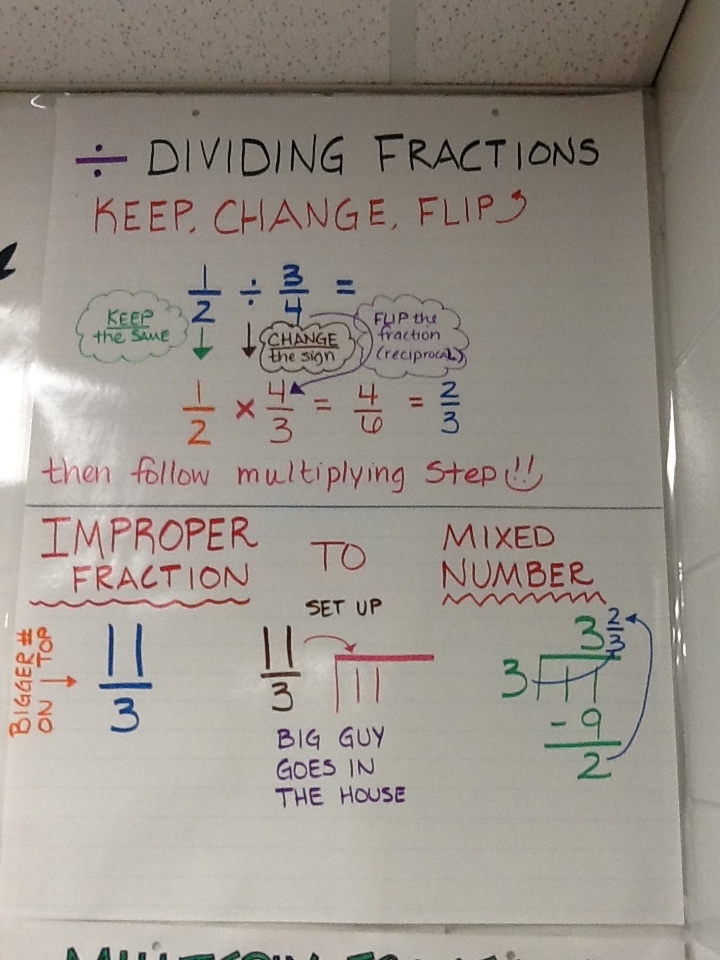 ÷ DIVIDING FRACTIONS
KEEP, CHANGE, FLIP
1/2 ÷ 3/4 =
KEEP
the SAME
CHANGE
the sign
FLIP the
fraction
(reciprocal)
1/2 × 4/3 = 4/6 = 2/3
then follow multiplying Step!!
IMPROPER
FRACTION
TO
MIXED
NUMBER
BIGGER #
ON TOP
11/3
SET UP
11/3
11
BIG GUY
GOES IN
THE HOUSE
3 2/3
3 11
-9
2